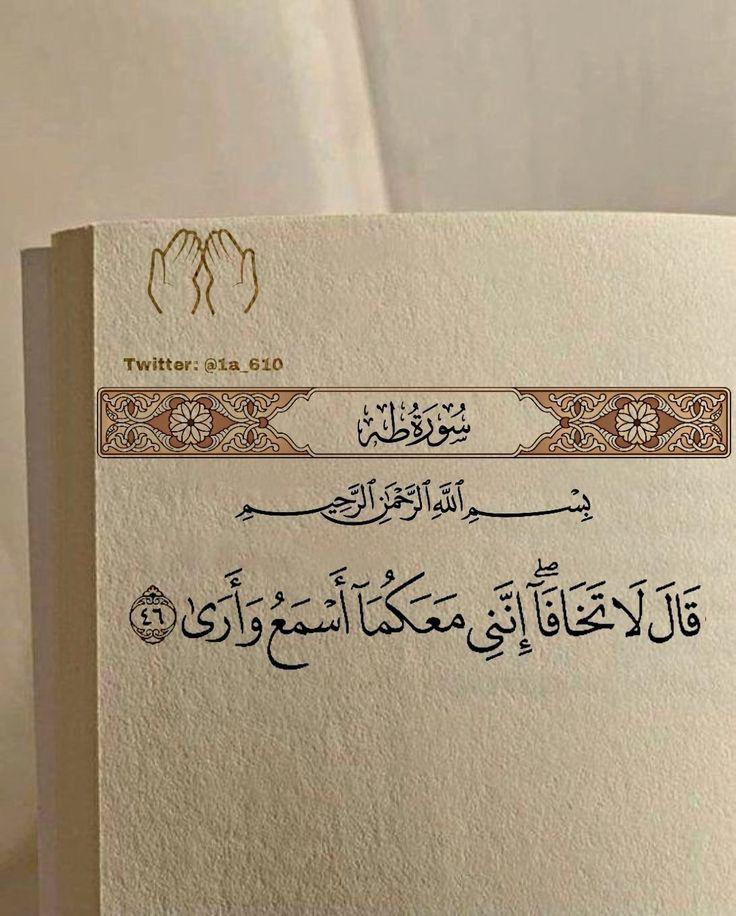 Twitter: @1a_610
سُورَةُ طه
بِسْمِ ٱللَّهِ ٱلرَّحْمَٰنِ ٱلرَّحِيمِ
قَالَ لَا تَخَافَآ ۖ إِنَّنِى مَعَكُمَآ أَسْمَعُ وَأَرَىٰ ٤٦